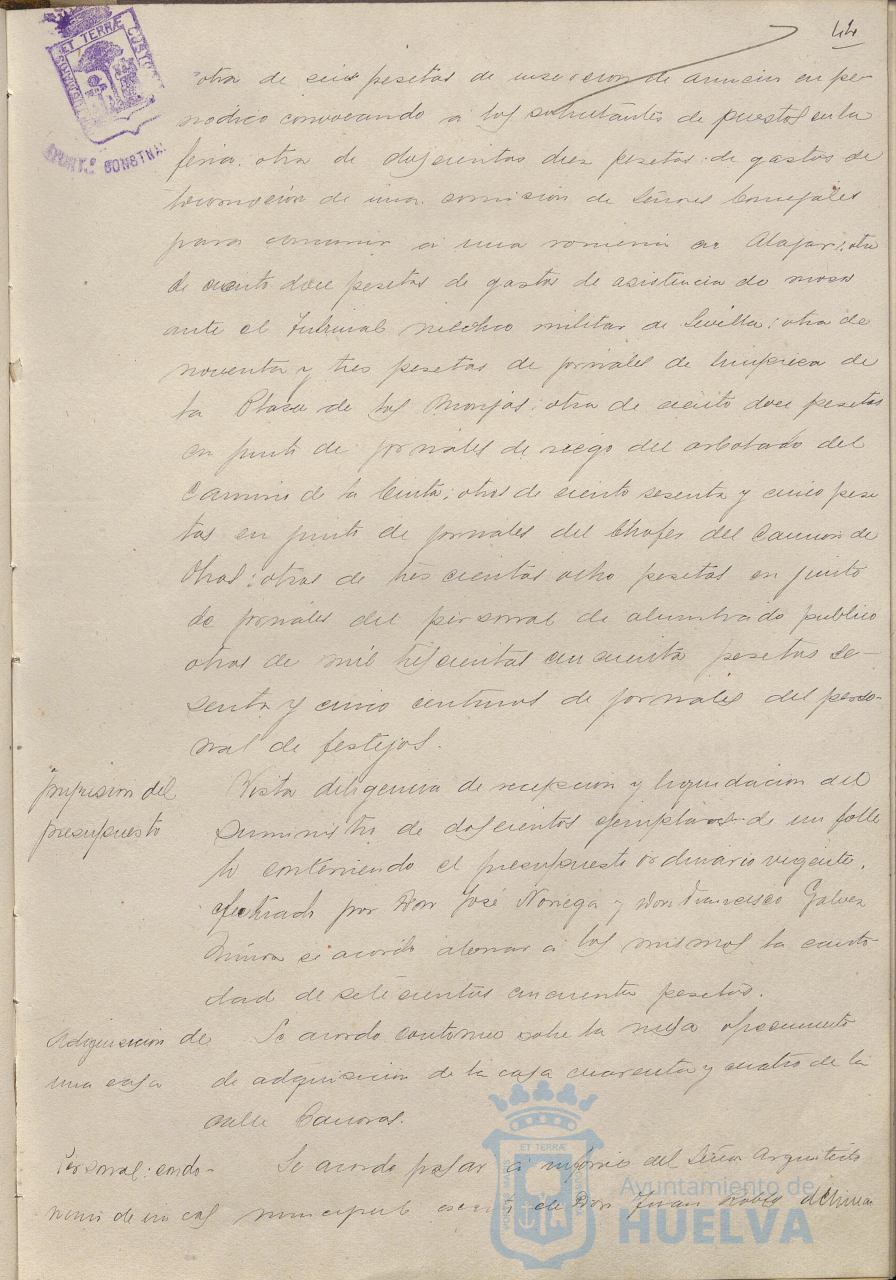 44
otra de seis pesetas de insercion de anuncio en pe-
riodico convocando a los solicitantes de puestos en la
feria: otra de doscientas diez pesetas de gastos de
locomoción de una comision de Señores Concejales
para concurrir a una romeria en Alajar: otra
de ciento doce pesetas de gastos de asistencia de mozos
ante el Tribunal médico militar de Sevilla: otra de
noventa y tres pesetas de jornales de limpieza de
la Plaza de las Monjas: otra de ciento doce pesetas
en junto de jornales de riego del arbolado del
Camino de la Cinta: otras de ciento sesenta y cinco pese
tas en junto de jornales del Chofer del Camion de
Obras: otras de trescientas ocho pesetas en junto
de jornales del personal de alumbrado publico
otras de mil trescientas cincuenta pesetas se-
senta y cinco centimos de jornales del perso-
nal de festejos.
Impresion del
presupuesto
Vista diligencia de recepcion y liquidacion del
suministro de doscientos ejemplares de un folle
to conteniendo el presupuesto ordinario vigente,
efectuado por Don José Noriega y Don Francisco Galvez
se acordo abonar a los mismos la canti
dad de setecientas cincuenta pesetas.
Adquisicion de
una casa
Se acordo continue sobre la mesa
de adquisicion de la casa cuarenta y cuatro de la
calle Canovas.
Personal:
de un
Se acordo pasar a informe del Señor Arquitecto
municipal de Don Juan Robles
ET TERRÆ CUSTODIA
AYUNT.º CONSTNAL
ET TERRÆ
Ayuntamiento de
HUELVA